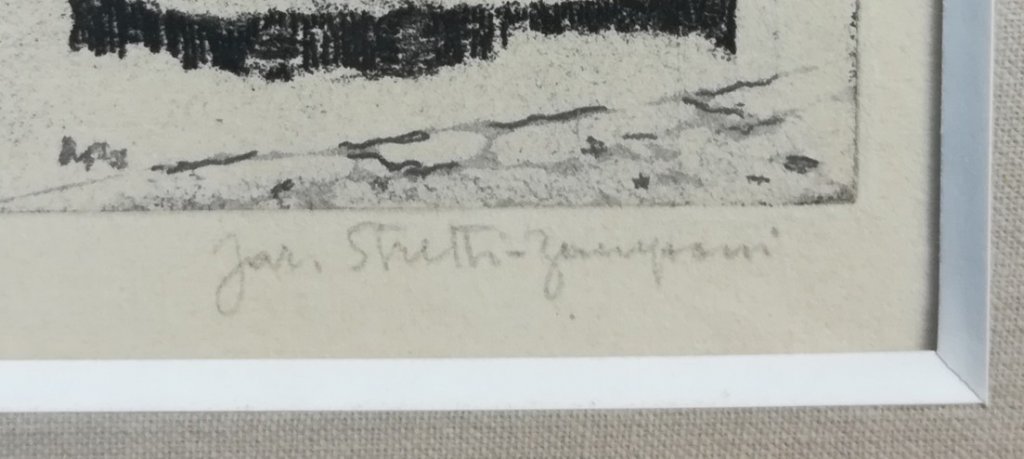 Jar. Stretti-Zamponi